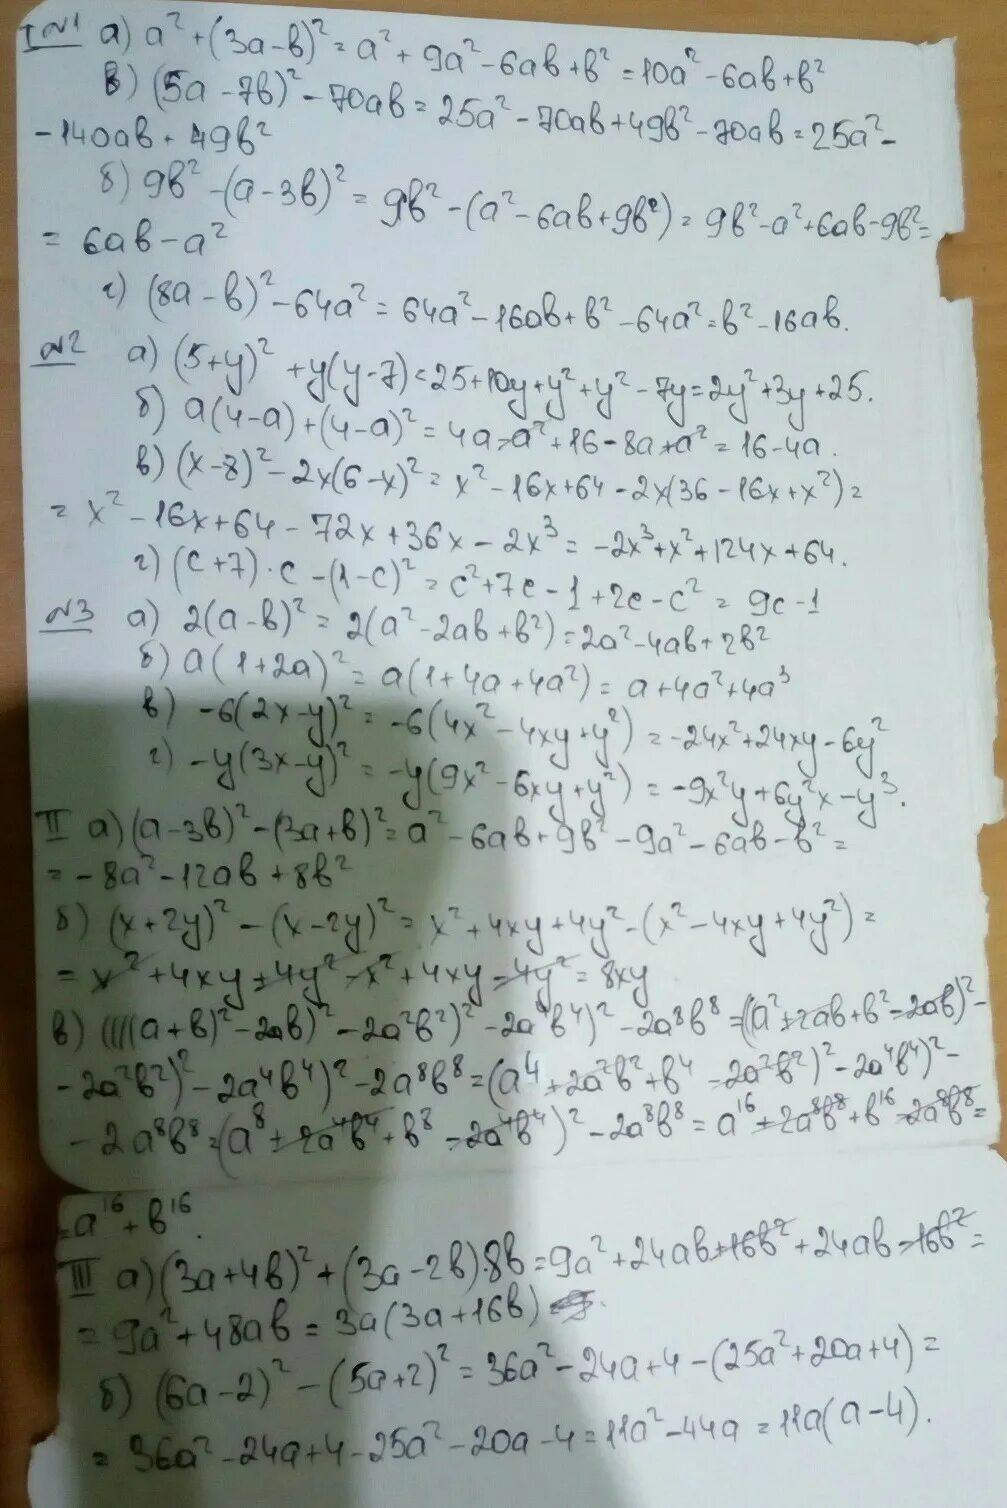 I №1 а) a² + (3a-в)² = a² + 9a² - 6ab + в² = 10a² - 6ab + в²
в) (5a - 7в)² - 70ав = 25a² - 70ав + 49в² - 70ав = 25a² -
- 140ав + 49в²
б) 9в² - (a - 3в)² = 9в² - (a² - 6ав + 9в²) = 9в² - a² + 6ав - 9в² =
= 6ав - a²
г) (8a - в)² - 64a² = 64a² - 16ав + в² - 64a² = в² - 16ав.
№2 а) (5+y)² + y(y-7) = 25 + 10y + y² + y² - 7y = 2y² + 3y + 25.
б) a(4-a) + (4-a)² = 4a - a² + 16 - 8a + a² = 16 - 4a.
в) (x-8)² - 2x(6-x)² = x² - 16x + 64 - 2x(36 - 16x + x²) =
= x² - 16x + 64 - 72x + 36x - 2x³ = -2x³ + x² + 124x + 64.
г) (c+7)·c - (1-c)² = c² + 7c - 1 + 2c - c² = 9c - 1
№3 а) 2(a-в)² = 2(a² - 2ав + в²) = 2a² - 4ав + 2в²
б) a(1+2a)² = a(1 + 4a + 4a²) = a + 4a² + 4a³
в) -6(2x-y)² = -6(4x² - 4xy + y²) = -24x² + 24xy - 6y²
г) -y(3x-y)² = -y(9x² - 6xy + y²) = -9x²y + 6y²x - y³.
II а) (a-3в)² - (3a+в)² = a² - 6ав + 9в² - 9a² - 6ав - в² =
= -8a² - 12ав + 8в²
б) (x+2y)² - (x-2y)² = x² + 4xy + 4y² - (x² - 4xy + 4y²) =
= x² + 4xy + 4y² - x² + 4xy - 4y² = 8xy
в) ((((a+в)² - 2ав)² - 2a²в²)² - 2a⁴в⁴)² - 2a⁸в⁸ = ((a² + 2ав + в² - 2ав)² -
- 2a²в²)² - 2a⁴в⁴)² - 2a⁸в⁸ = (a⁴ + 2a²в² + в⁴ - 2a²в²)² - 2a⁴в⁴)² -
- 2a⁸в⁸ = (a⁸ + 2a⁴в⁴ + в⁸ - 2a⁴в⁴)² - 2a⁸в⁸ = a¹⁶ + 2a⁸в⁸ + в¹⁶ - 2a⁸в⁸ =
= a¹⁶ + в¹⁶.
III а) (3a+4в)² + (3a-2в)·8в = 9a² + 24ав + 16в² + 24ав - 16в² =
= 9a² + 48ав = 3a(3a+16в)
б) (6a-2)² - (5a+2)² = 36a² - 24a + 4 - (25a² + 20a + 4) =
= 36a² - 24a + 4 - 25a² - 20a - 4 = 11a² - 44a = 11a(a-4).